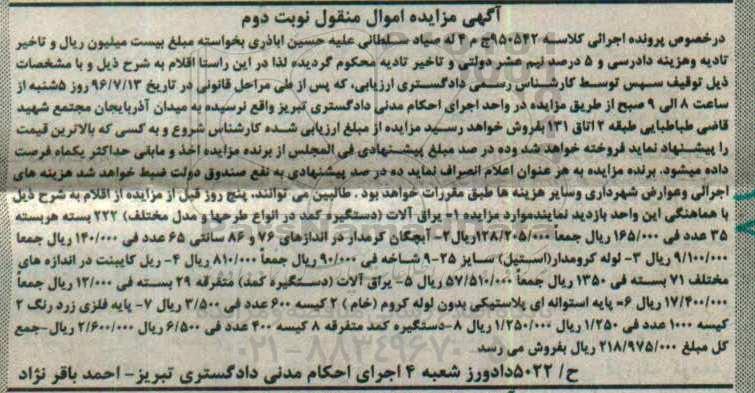 آگهی مزایده اموال منقول نوبت دوم
درخصوص پرونده اجرائی کلاسه ۹۵۰۵۴۲ج م ۴ له صیاد سلطانی علیه حسین اباذری بخواسته مبلغ بیست میلیون ریال و تاخیر
تادیه وهزینه دادرسی و ۵ درصد نیم عشر دولتی و تاخیر تادیه محکوم گردیده لذا در این راستا اقلام به شرح ذیل و با مشخصات
ذیل توقیف سپس توسط کارشناس رسمی دادگستری ارزیابی، که پس از طی مراحل قانونی در تاریخ ۹۶/۷/۱۳ روز ۵شنبه از
ساعت ۸ الی ۹ صبح از طریق مزایده در واحد اجرای احکام مدنی دادگستری تبریز واقع نرسیده به میدان آذربایجان مجتمع شهید
قاضی طباطبایی طبقه ۲ اتاق ۱۳۱ بفروش خواهد رسید مزایده از مبلغ ارزیابی شده کارشناس شروع و به کسی که بالاترین قیمت
را پیشنهاد نماید فروخته خواهد شد وده در صد مبلغ پیشنهادی فی المجلس از برنده مزایده اخذ و مابقی حداکثر یکماه فرصت
داده میشود. برنده مزایده به هر عنوان اعلام انصراف نماید ده در صد پیشنهادی به نفع صندوق دولت ضبط خواهد شد هزینه های
اجرائی وعوارض شهرداری وسایر هزینه ها طبق مقررات خواهد بود . طالبین می توانند، پنج روز قبل از مزایده از اقلام به شرح ذیل
با هماهنگی این واحد بازدید نمایندموارد مزایده ۱- یراق آلات (دستگیره کمد در انواع طرحها و مدل مختلف) ۲۲۲ بسته هربسته
۳۵ عدد فی ۱۶۵/۰۰۰ ریال جمعاً ۱۲۸/۲۰۵/۰۰۰ریال۲- آبچکان کرمدار در اندازهای ۷۶ و ۸۶ سانتی ۶۵ عدد فی ۱۴۰/۰۰۰ ریال جمعا
۹/۱۰۰/۰۰۰ ریال ۳- لوله کرومدار(استیل) سایز ۲۵-۹ شاخه فی ۹۰/۰۰۰ ریال جمعاً ۸۱۰/۰۰۰ ریال ۴- ریل کابینت در اندازه های
مختلف ۷۱ بسته فی ۱۳۵۰ ریال جمعاً ۵۷/۵۱۰/۰۰۰ ریال ۵- یراق آلات (دستگیره کمد) متفرقه ۲۹ بسته فی ۱۲/۰۰۰ ریال جمعاً
۱۷/۴۰۰/۰۰۰ ریال ۶- پایه استوانه ای پلاستیکی بدون لوله کروم (خام ) ۲ کیسه ۶۰۰ عدد فی ۳/۵۰۰ ریال ۷- پایه فلزی زرد رنگ ۲
کیسه ۱۰۰۰ عدد فی ۱/۲۵۰ ریال ۱/۲۵۰/۰۰۰ ریال ۸-دستگیره کمد متفرقه ۸ کیسه ۴۰۰ عدد فی ۶/۵۰۰ ریال ۲/۶۰۰/۰۰۰ ریال-جمع
کل مبلغ ۲۱۸/۹۷۵/۰۰۰ ریال بفروش می رسد
ح/ ۵۰۲۲دادورز شعبه ۴ اجرای احکام مدنی دادگستری تبریز- احمد باقر نژاد
۰۲۱-۸۸۳۴۹۶۷۰-۵